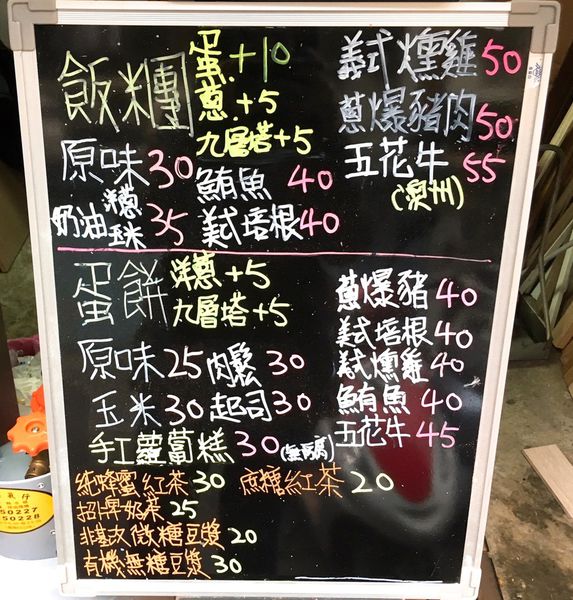 飯糰
蛋+10
蔥+5
九層塔+5
原味30
奶油洋蔥玉米35
鮪魚 40
美式培根40
義式燻雞50
蔥爆豬肉50
五花牛55
(澳州)
蛋餅
洋蔥+5
九層塔+5
原味25
肉鬆30
玉米30
起司30
手工蘿蔔糕30
蔥爆豬40
美式培根40
義式燻雞40
鮪魚40
五花牛45
純蜂蜜紅茶30
蔗糖紅茶20
招牌奶茶25
非基改微糖豆漿20
有機無糖豆漿30
50227
50228